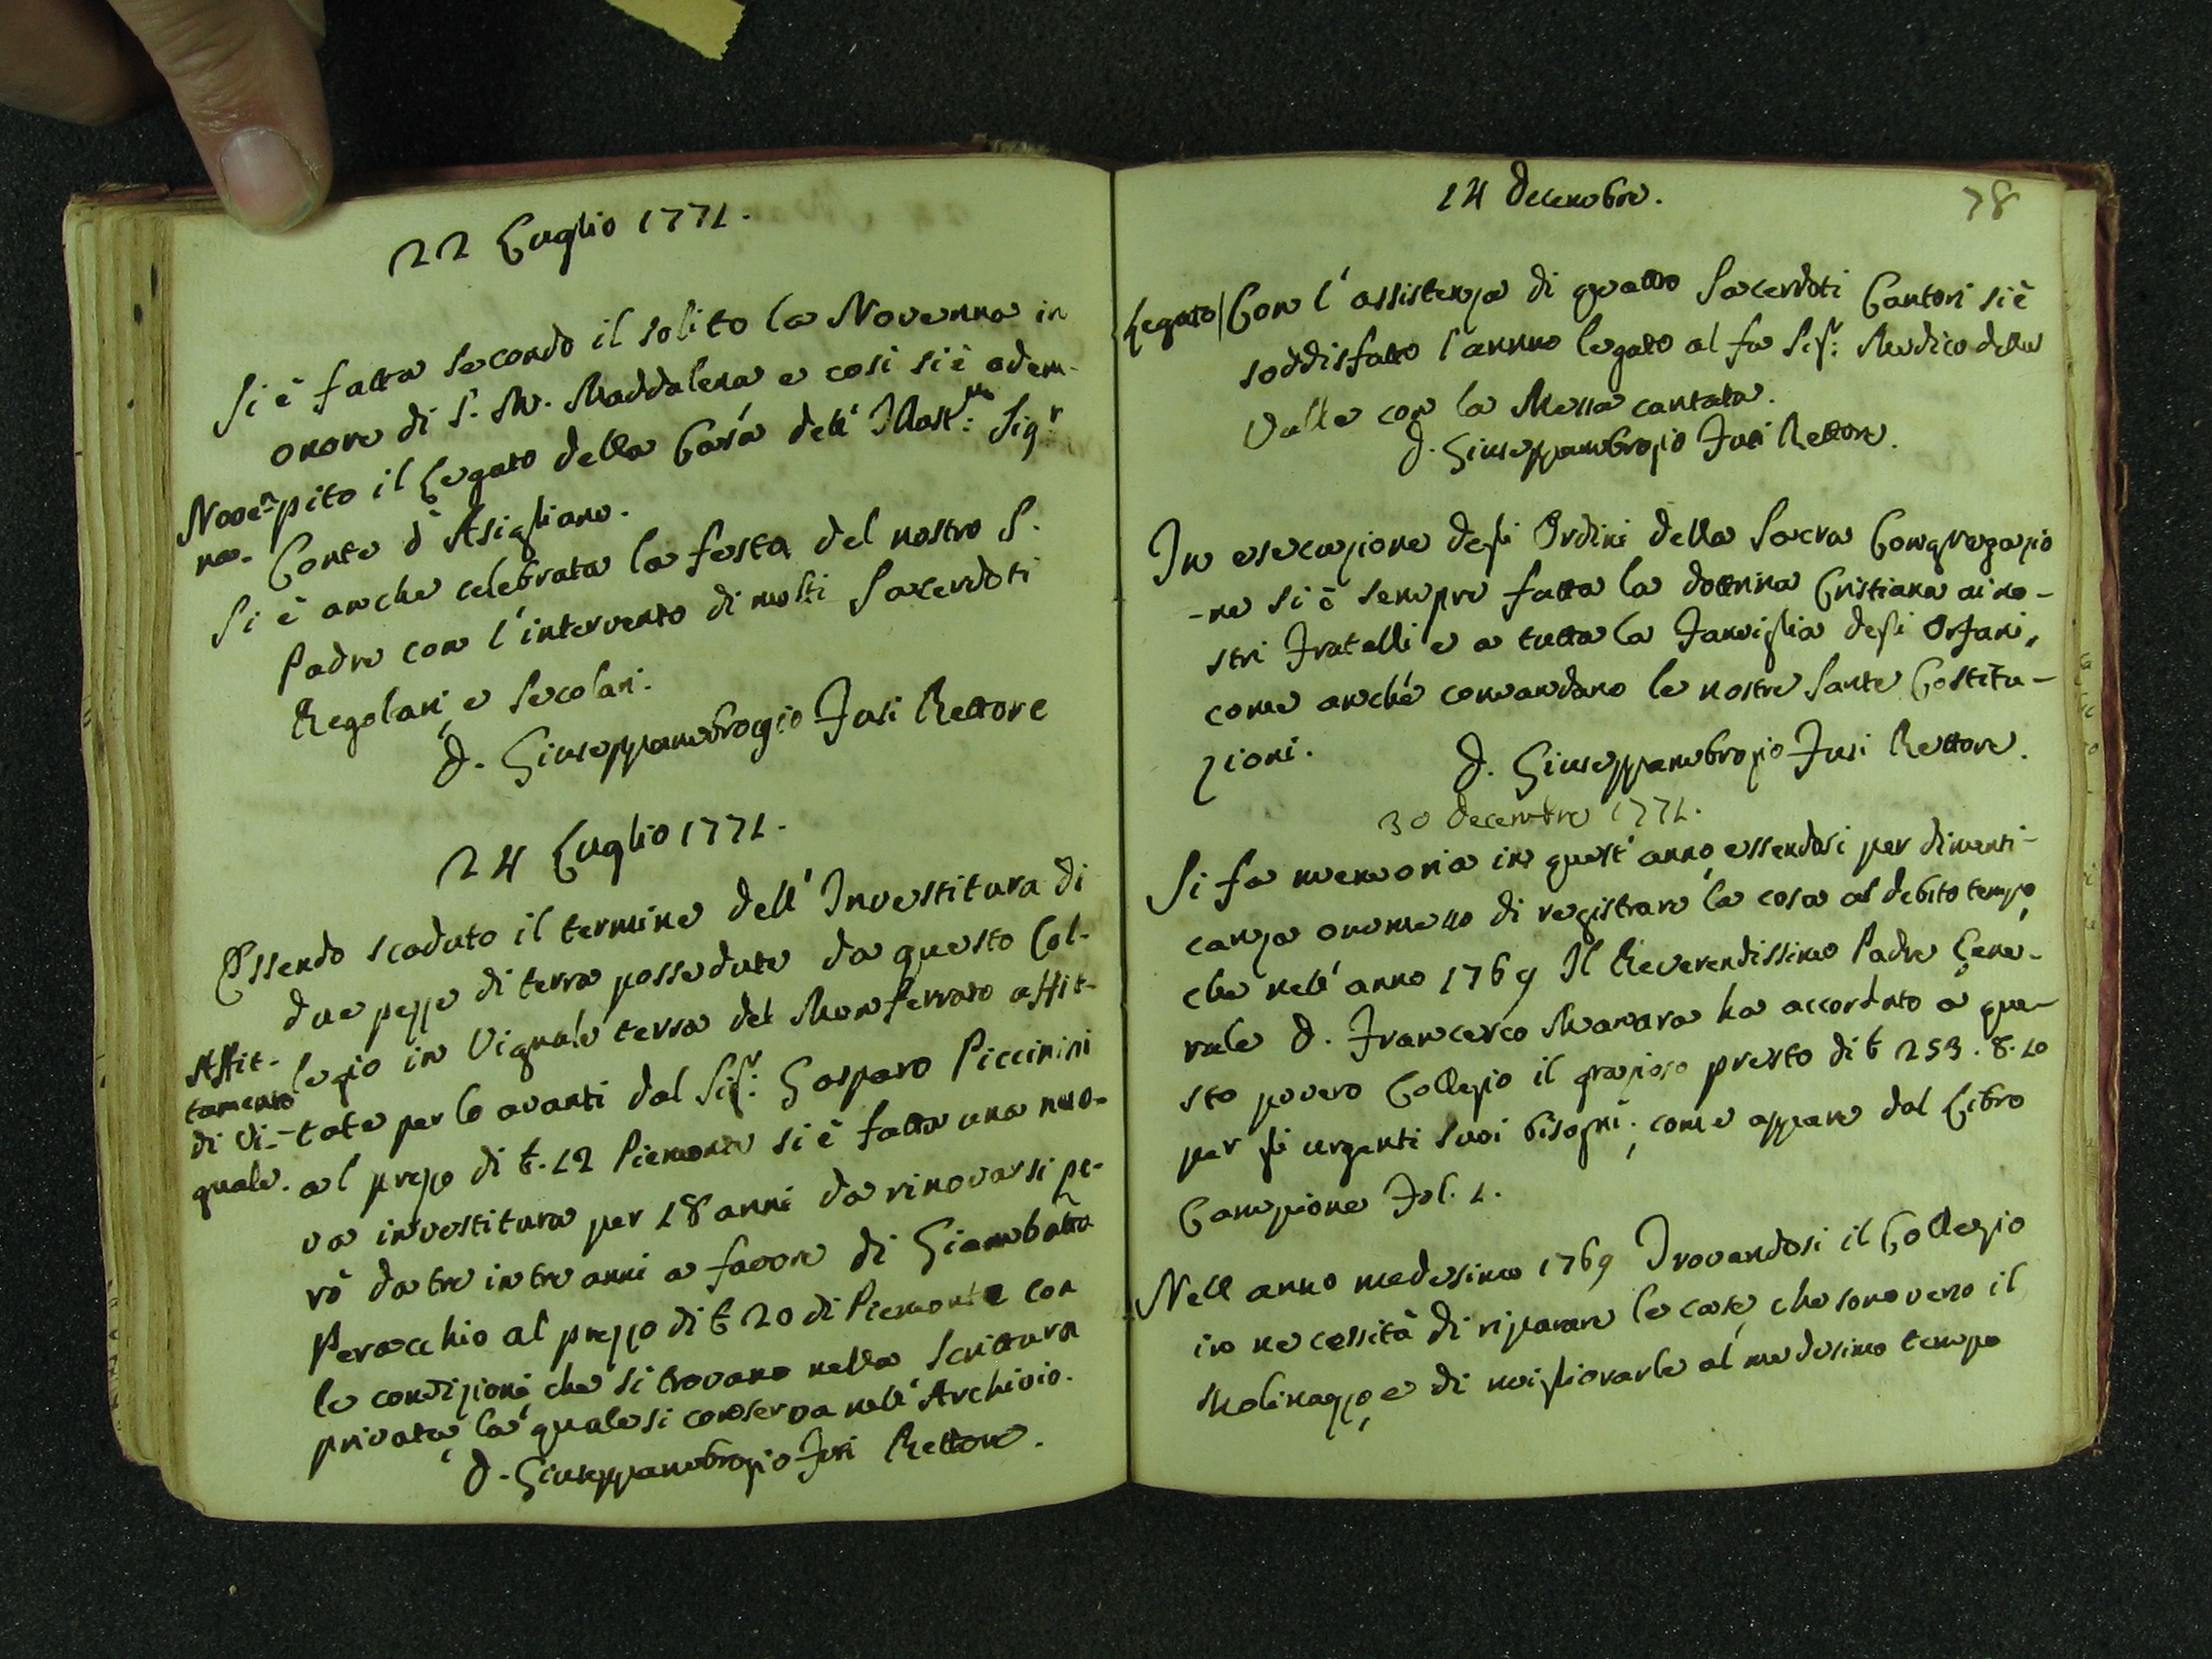 22 Luglio 1771.
Si è fatta secondo il solito la Novenna in
onore di S. M. Maddalena e così si è adem-
Noven-
na.
pito il Legato della Casa dell' Illust:mo Sig:r
Conte d'Asigliano.
Si è anche celebrata la festa del nostro S.
Padre con l'intervento di molti Sacerdoti
Regolari, e Secolari.
D. Giuseppambrogio Fusi Rettore
24 Luglio 1771.
Essendo scaduto il termine dell' Investitura di
due pezze di terra possedute da questo Col-
Affit-
tamento
di Vi-
gnale.
legio in Vignale terra del Monferrato affit-
tate per lo avanti dal Sig:r Gasparo Piccinini
al prezzo di £. 12 Piemonte si è fatta una nuo-
va investitura per 18 anni da rinovarsi pe-
rò da tre in tre anni a favore di Giambatta
Peracchio al prezzo di £ 20 di Piemonte con
le condizioni, che si trovano nella Scrittura
privata, la quale si conserva nell' Archivio.
D. Giuseppambrogio Fusi Rettore.
14 Decembre.
78
Legato
Con l'assistenza di quatto Sacerdoti Cantori si è
soddisfatto l'annuo legato al fu Sig:r Medico della
Valle con la Messa cantata.
D. Giuseppambrogio Fusi Rettore.
In esecuzione degli Ordini della Sacra Congregazio
-ne si è sempre fatta la dottrina Cristiana ai no-
stri Fratelli e a tutta la Famiglia degli Orfani,
come anche comandano le nostre Sante Costitu-
zioni.
D. Giuseppambrogio Fusi Rettore.
30 Decembre 1771.
Si fa memoria in quest' anno, essendosi per dimenti-
canza ommesso di registrare la cosa al debito tempo,
che nell' anno 1769 Il Reverendissimo Padre Gene-
rale D. Francesco Manara ha accordato a que-
sto povero Collegio il grazioso presto di £ 253.8.10
per gli urgenti suoi bisogni; come appare dal Libro
Campione Fol. 1.
Nell anno medesimo 1769 Trovandosi il Collegio
in necessità di riparare le case, che sono verso il
Molinazzo, e di migliorarle al medesimo tempo